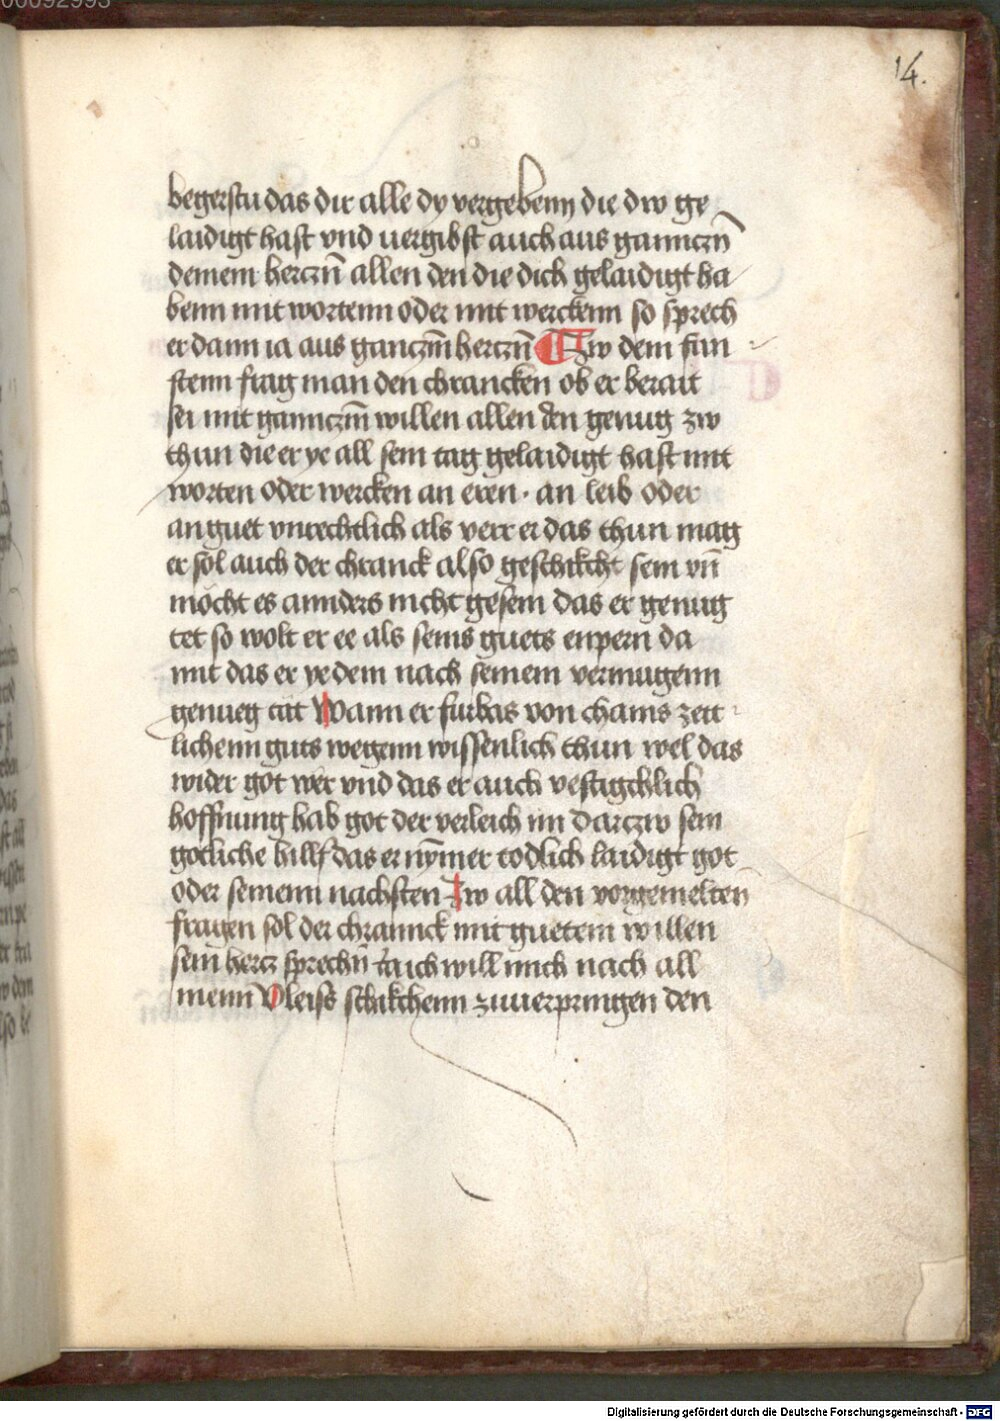 14.
begerstu das dir alle dy vergebenn die dw ge
laidigt hast vnd uergibst auch aus ganntzn̄
deinem hertzn̄ allen den die dich gelaidigt ha
benn mit wortenn oder mit werckenn so sprech
er dann ia aus gantzm̄ hertzn̄ Zw dem fun
ftenn frag man den chrancken ob er berait
sei mit ganntzm̄ willen allen den genug zw
thun die er ye all sein tag gelaidigt hast mit
worten oder wercken an eren · an leib oder
an guet vnrechtlich als verr er das thun mag
er sol auch der chranck also geschikcht sein vn̄
möcht es annders nicht gesein das er genug
tet so wolt er ee als seins guets enpern da
mit das er yedem nach seinem vermugenn
genueg tät Wann er furbas von chains zeit
lichenn guts wegenn wissenlich thun wel das
wider got wër vnd das er auch vestigchlich
hoffnung hab got der verleich im darczw sein
gotliche hillf das er nymer todlich laidigt got
oder seinenn nachsten Zw all den vorgemelten
fragen sol der chrannck mit guetem willen
sein hertz sprechn̄ ia ich will mich nach all
menn vleiss schikchenn zuuerpringen den
Digitalisierung gefördert durch die Deutsche Forschungsgemeinschaft - DFG